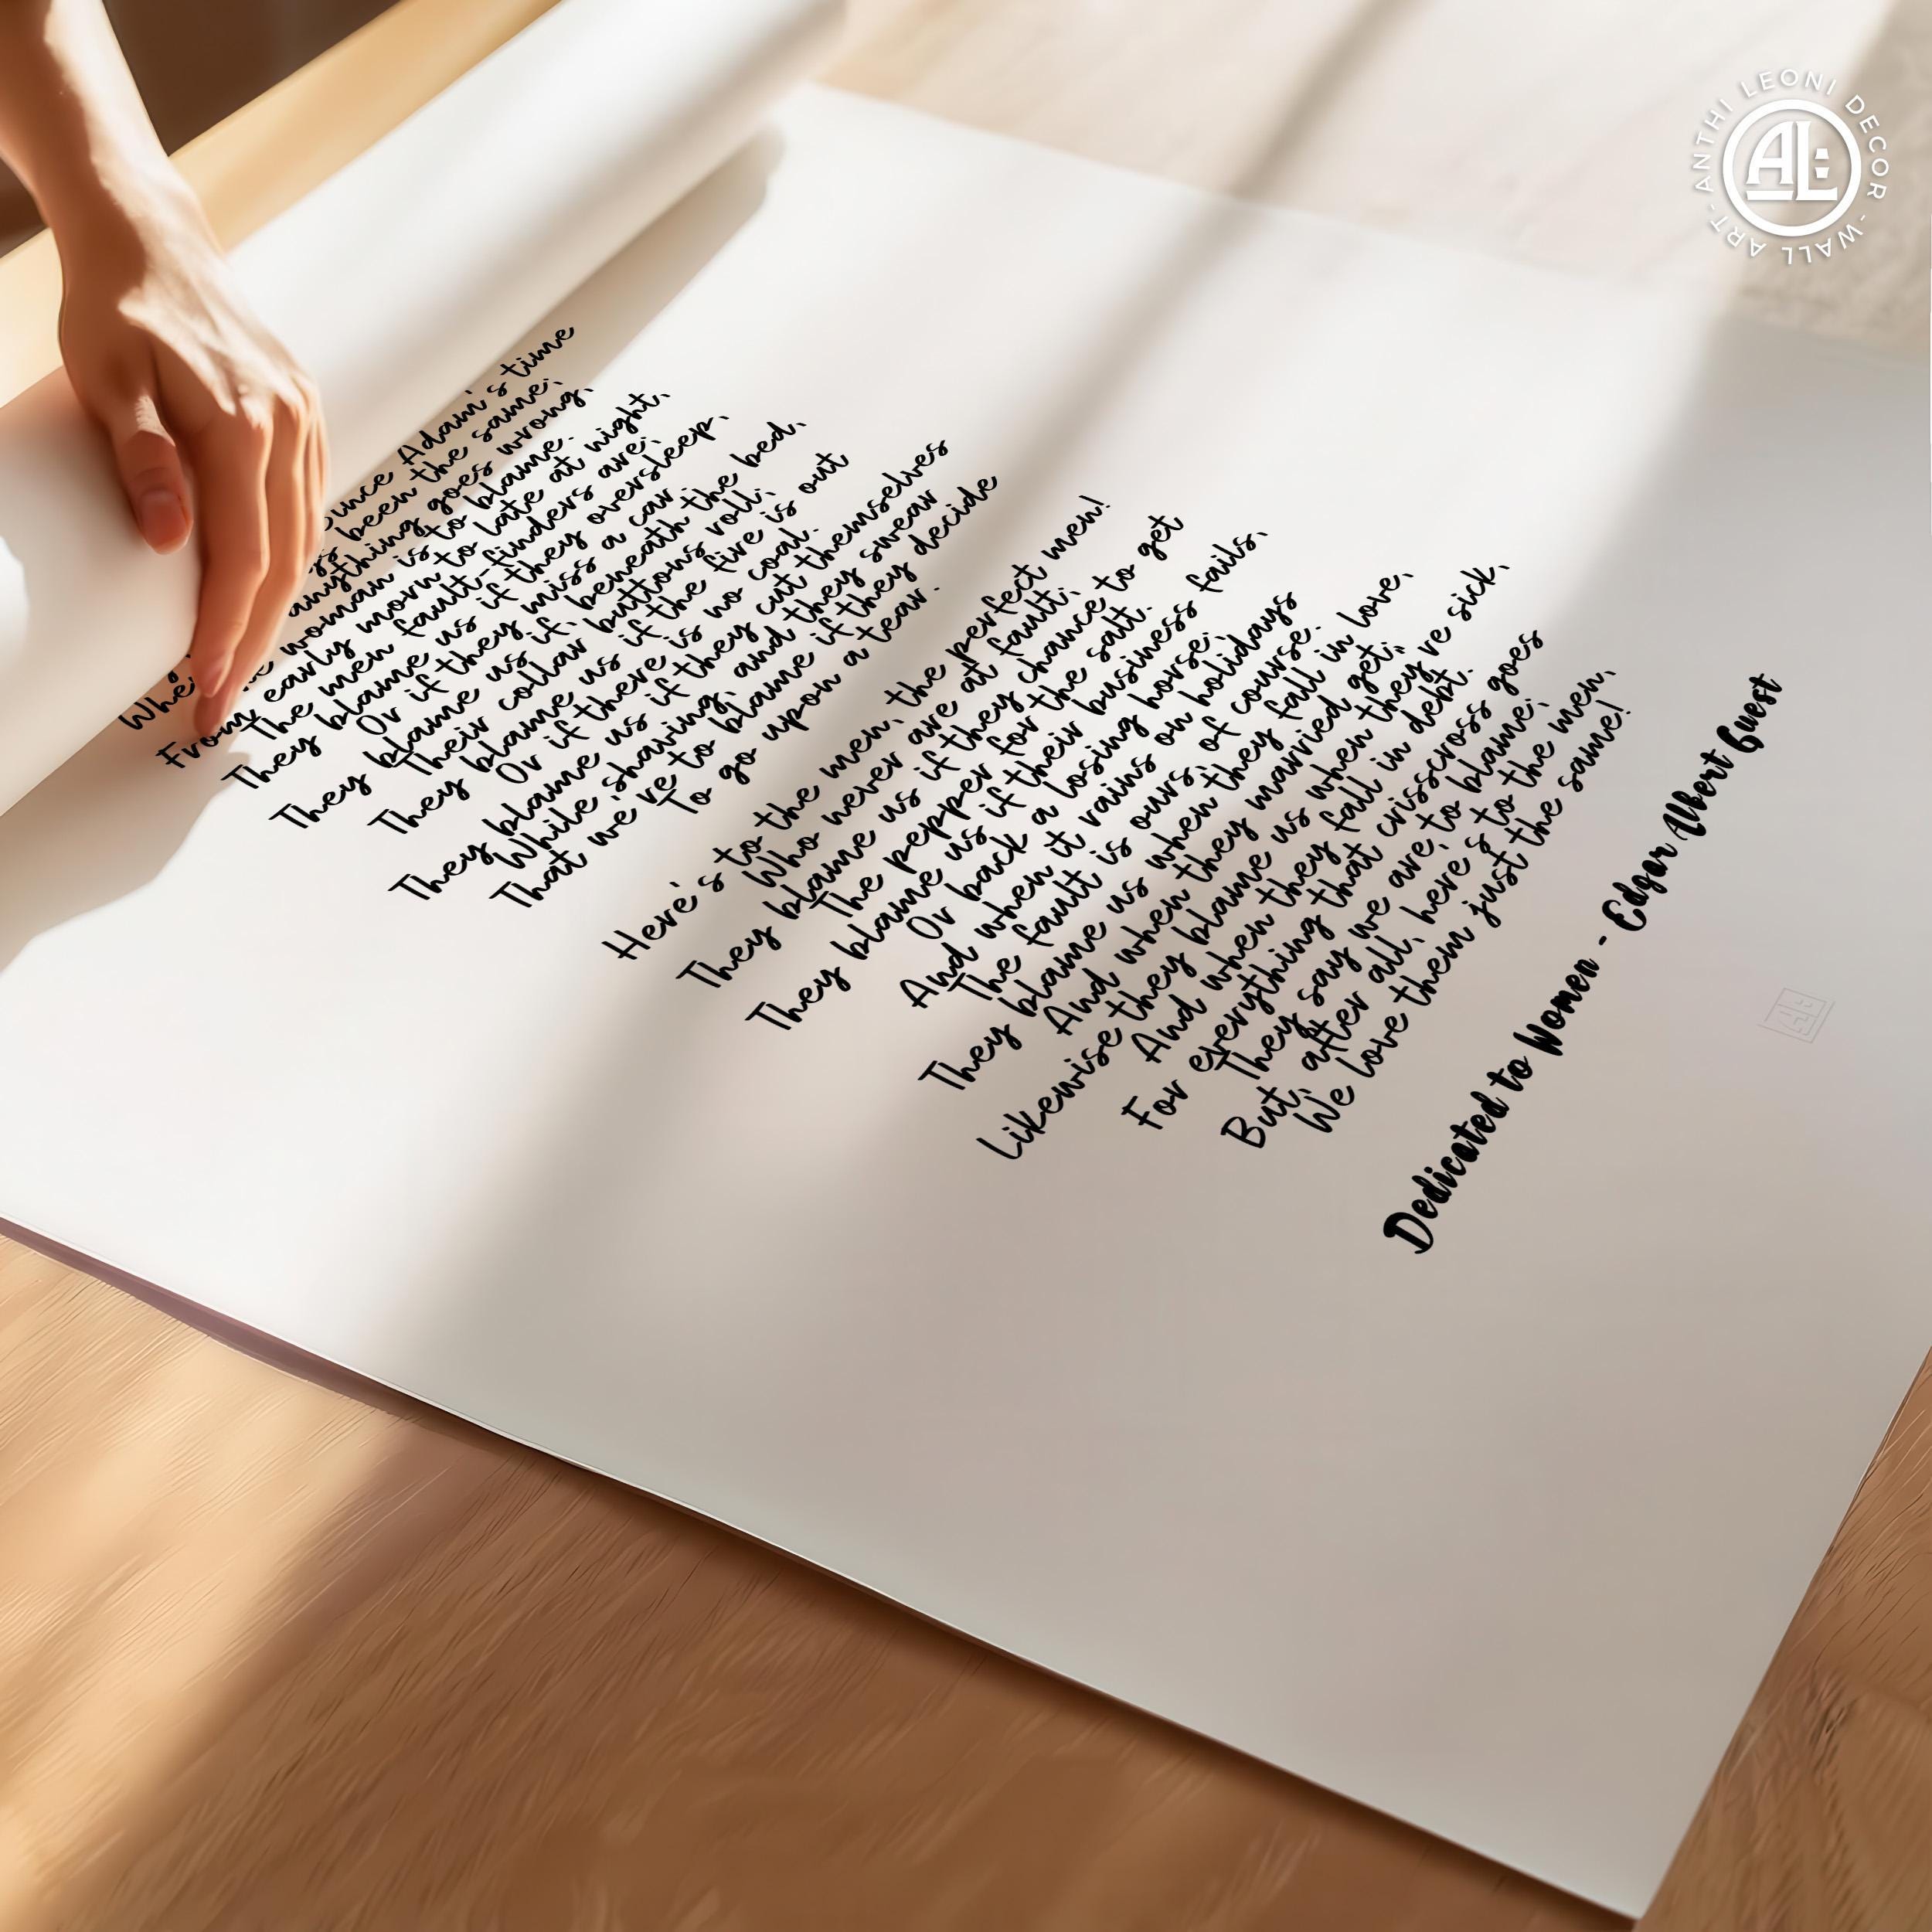 since Adam's time
been the same;
Whe anything goes wrong,
woman is to blame.
From early morn to late at night,
The men fault-finders are;
They blame us if they oversleep,
Or if they miss a car.
They blame us if, beneath the bed,
Their collar buttons roll;
They blame us if the fire is out
Or if there is no coal.
They blame us if they cut themselves
While shaving, and they swear
That we're to blame if they decide
To go upon a tear.
Here's to the men, the perfect men!
Who never are at fault;
They blame us if they chance to get
The pepper for the salt.
They blame us if their business fails,
Or back a losing horse;
And when it rains on holidays
The fault is ours, of course.
They blame us when they fall in love,
And when they married get;
Likewise they blame us when they're sick,
And when they fall in debt.
For everything that crisscross goes
They say we are to blame;
But, after all, here's to the men,
We love them just the same!
Dedicated to Women - Edgar Albert Guest
ANTHI LEONI DECOR - WALL ART -
AL